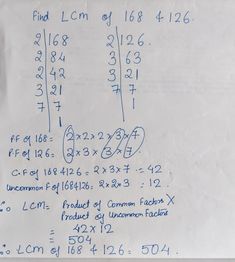 Find LCM of 168 & 126.
2 | 168    2 | 126.
2 | 84    3 | 63
2 | 42    3 | 21
3 | 21    7 | 7
7 | 7    1
1
P.F of 168 = 2×2×2×3×7
P.F of 126 = 2×3×3×7.
C.F of 168 & 126 = 2×3×7 = 42
Uncommon F of 168 & 126: 2×2×3 = 12.
∴ LCM = Product of Common Factors X
Product of Uncommon Factors
= 42×12
= 504
∴ LCM of 168 & 126 = 504.